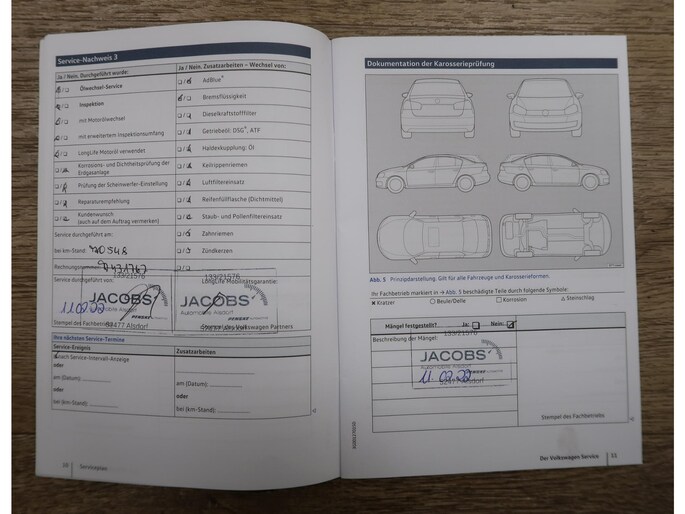 Service-Nachweis 3
Ja / Nein. Durchgeführt wurde:
Ja / Nein. Zusatzarbeiten – Wechsel von:
Ölwechsel-Service
AdBlue®
Inspektion
Bremsflüssigkeit
mit Motorölwechsel
Dieselkraftstofffilter
mit erweitertem Inspektionsumfang
Getriebeöl: DSG®, ATF
LongLife Motoröl verwendet
Haldexkupplung: Öl
Korrosions- und Dichtheitsprüfung der
Erdgasanlage
Keilrippenriemen
Prüfung der Scheinwerfer-Einstellung
Luftfiltereinsatz
Reparaturempfehlung
Reifenfüllflasche (Dichtmittel)
Kundenwunsch
(auch auf dem Auftrag vermerken)
Staub- und Pollenfiltereinsatz
Service durchgeführt am:
Zahnriemen
bei km-Stand:
Zündkerzen
Rechnungsnummer:
133/21576
133/21576
Service durchgeführt von:
LongLife Mobilitätsgarantie:
11.02.22
JACOBS
JACOBS
Automobile Alsdorf
52477 Alsdorf
Stempel des Fachbetriebs
Stempel des Volkswagen Partners
Ihre nächsten Service-Termine
Service-Ereignis
Zusatzarbeiten
nach Service-Intervall-Anzeige
oder
am (Datum):
am (Datum):
oder
oder
bei (km-Stand):
bei (km-Stand):
10
Serviceplan
Dokumentation der Karosserieprüfung
Abb. 5 Prinzipdarstellung. Gilt für alle Fahrzeuge und Karosserieformen.
Ihr Fachbetrieb markiert in → Abb. 5 beschädigte Teile durch folgende Symbole:
× Kratzer ○ Beule/Delle □ Korrosion △ Steinschlag
Mängel festgestellt? Ja: Nein:
133/21576
Beschreibung der Mängel:
JACOBS
Automobile Alsdorf
52477 Alsdorf
11.02.22
Stempel des Fachbetriebs
Der Volkswagen Service
11